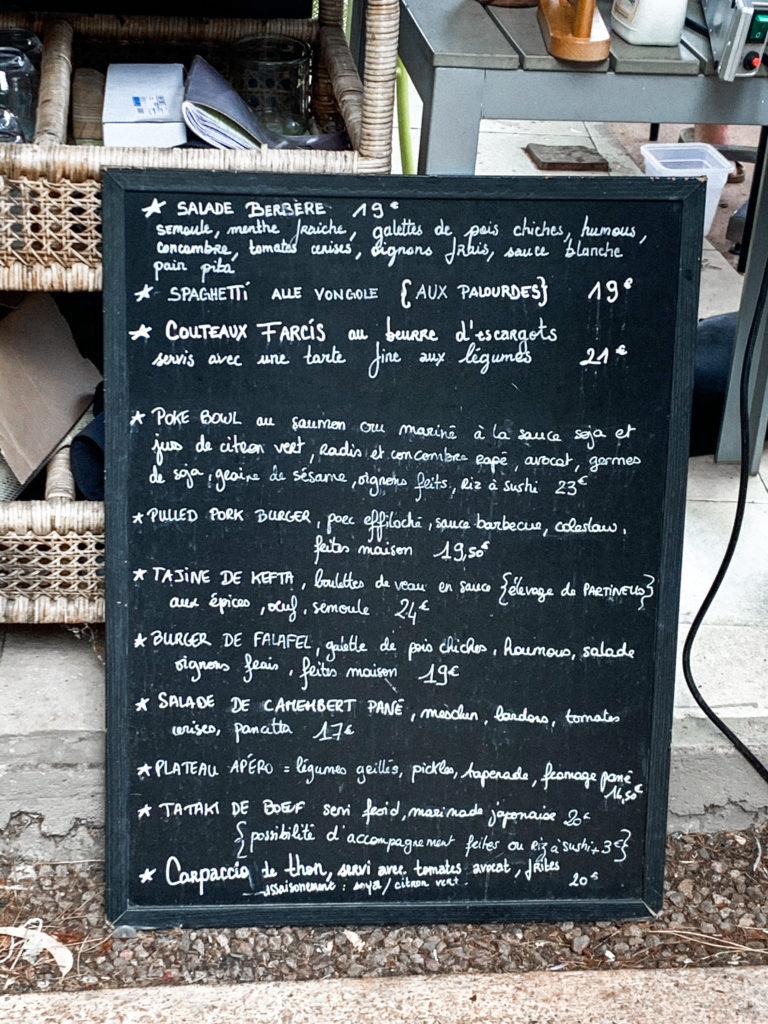 ★ SALADE BERBÈRE 19€
semoule, menthe fraiche, galettes de pois chiches, humous,
concombre, tomates cerises, oignons frais, sauce blanche
pain pita
★ SPAGHETTI ALLE VONGOLE {AUX PALOURDES} 19€
★ COUTEAUX FARCIS au beurre d'escargots
servis avec une tarte fine aux légumes 21€
★ POKE BOWL au saumon cru mariné à la sauce soja et
jus de citron vert, radis et concombre rapé, avocat, germes
de soja, graine de sésame, oignons frits, riz à sushi 23€
★ PULLED PORK BURGER, porc effiloché, sauce barbecue, coleslaw,
frites maison 19,50€
★ TAJINE DE KEFTA, boulettes de veau en sauce {élevage de PARTINELLO}
aux épices, oeuf, semoule 24€
★ BURGER DE FALAFEL, galette de pois chiches, houmous, salade
oignons frais, frites maison 19€
★ SALADE DE CAMEMBERT PANÉ, mesclun, lardons, tomates
cerises, pancetta 17€
★ PLATEAU APÉRO = légumes grillés, pickles, tapenade, fromage pané
16,50€
★ TATAKI DE BOEUF servi froid, marinade japonaise 20€
{possibilité d'accompagnement frites ou riz à sushi + 3€}
★ Carpaccio de thon, servi avec tomates avocat, frites
assaisonement : soya / citron vert. 20€